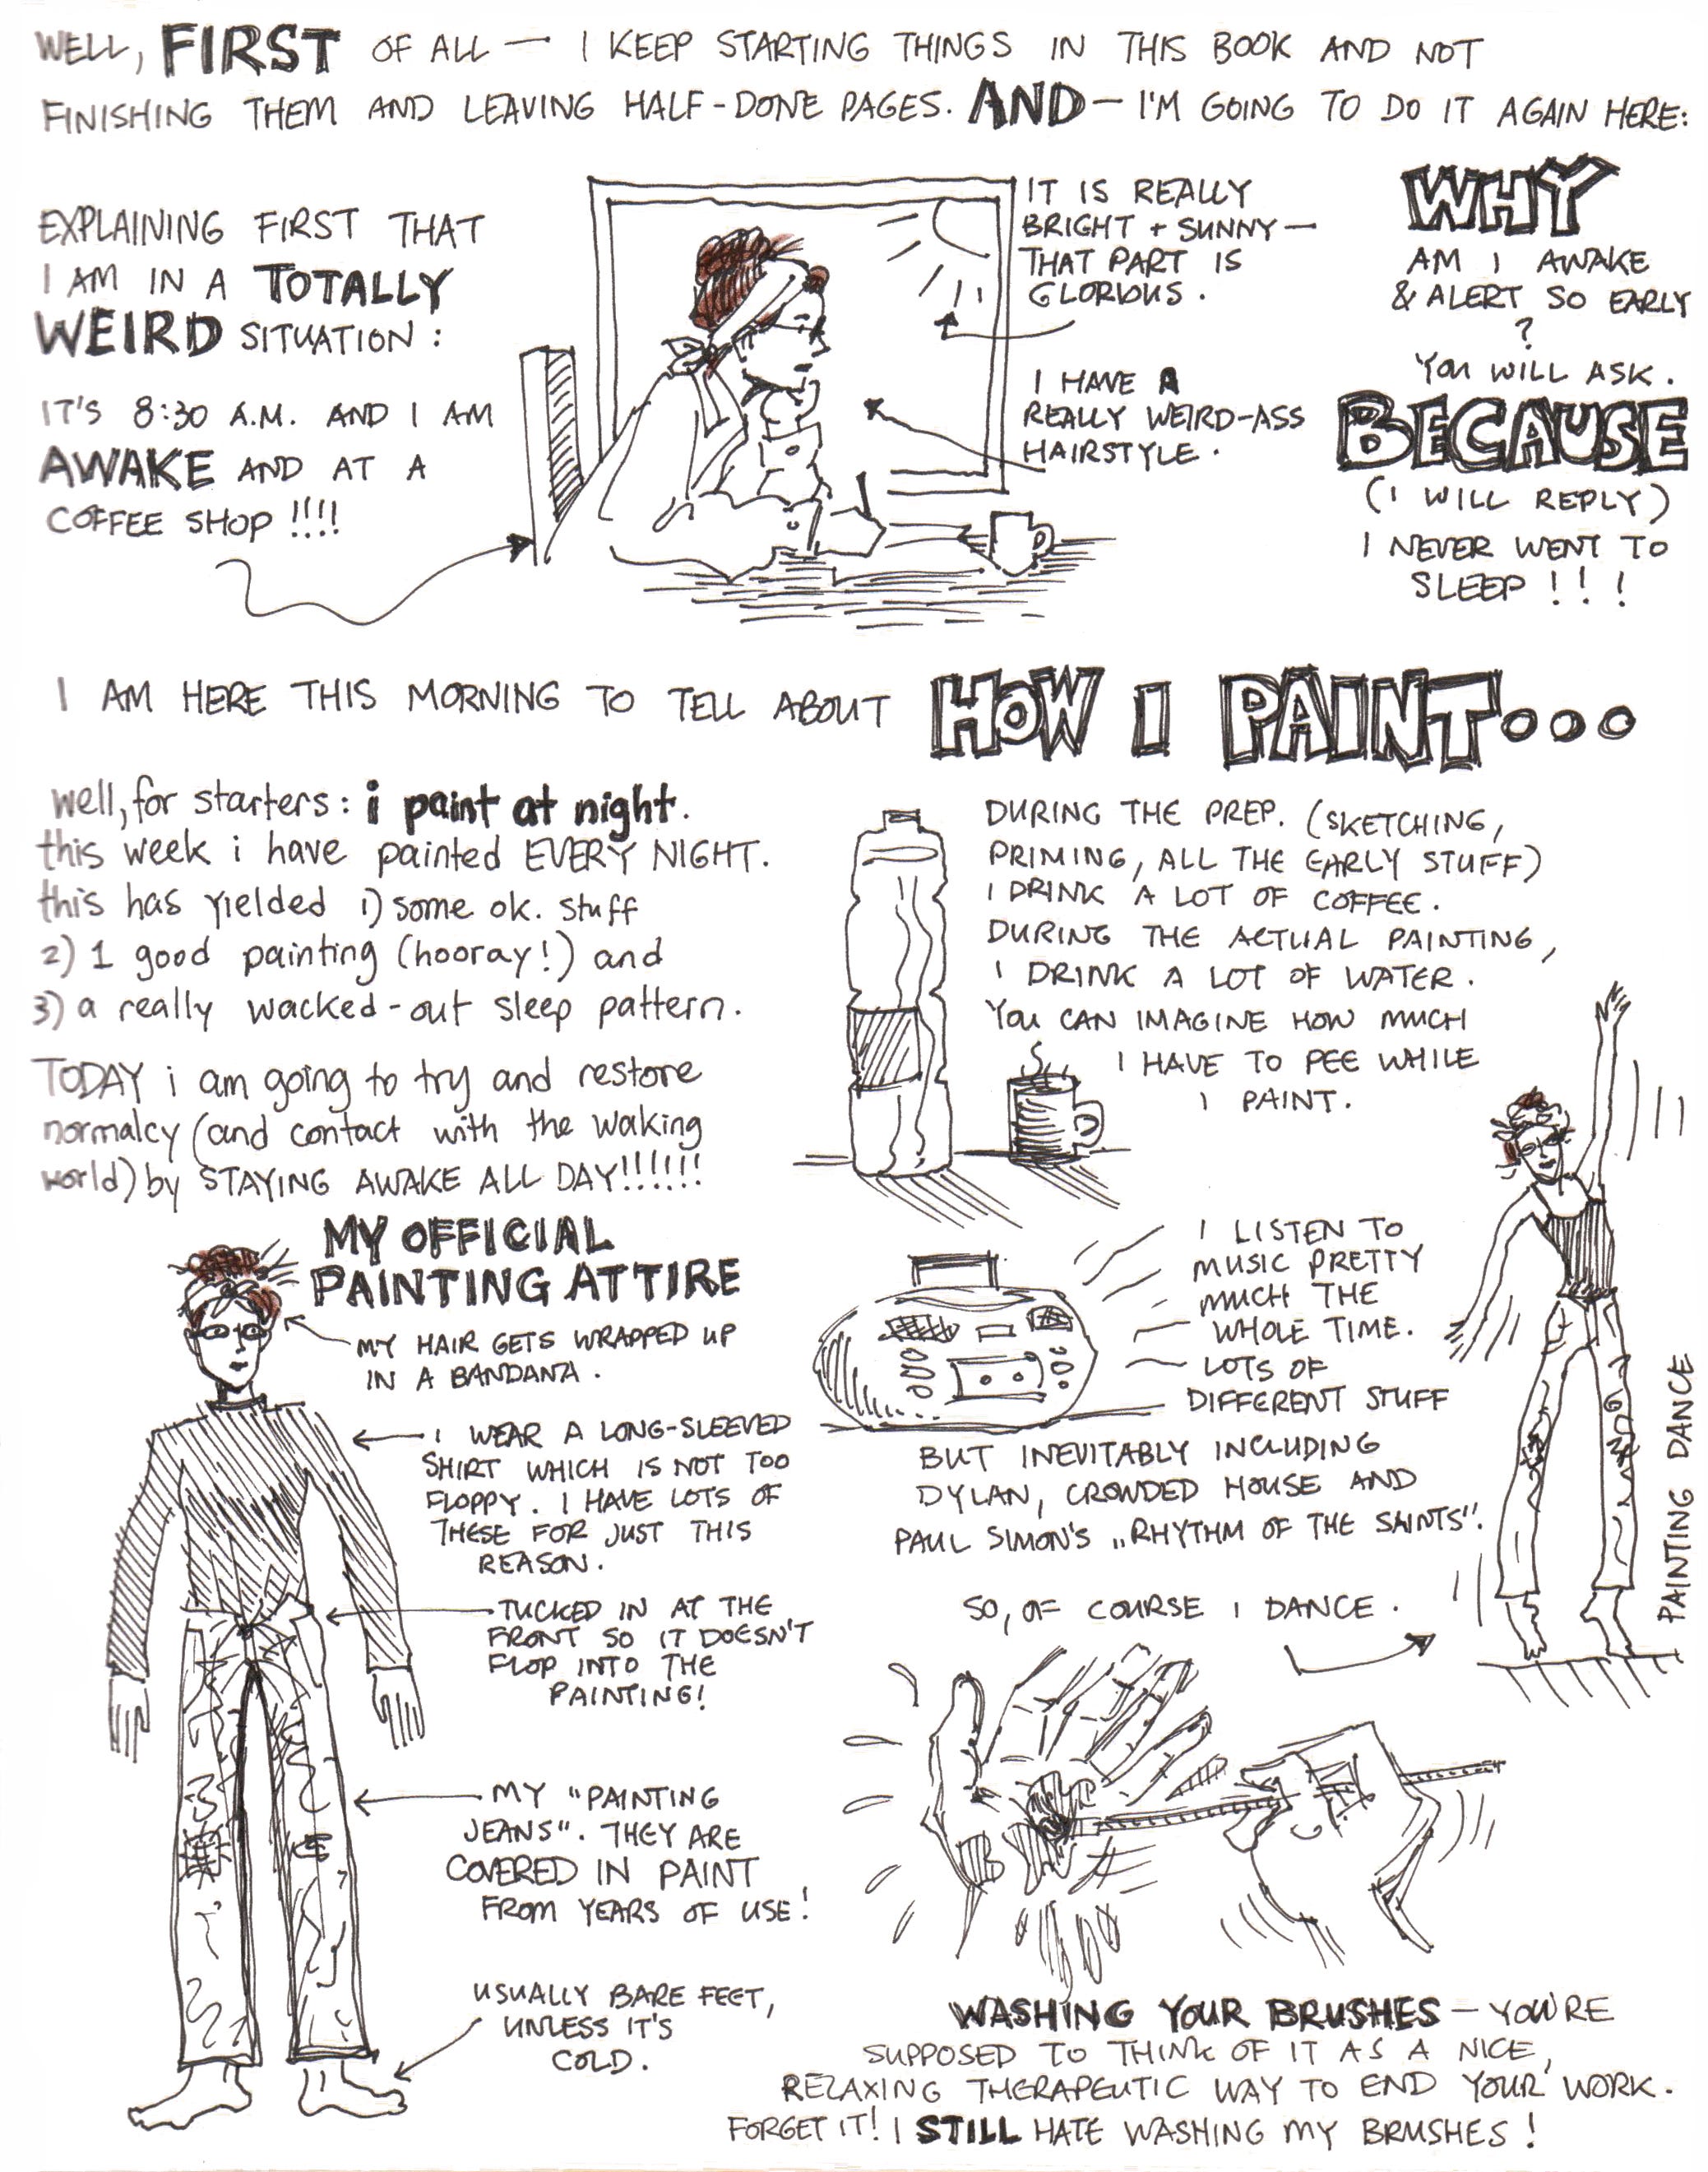 WELL, FIRST OF ALL — I KEEP STARTING THINGS IN THIS BOOK AND NOT
FINISHING THEM AND LEAVING HALF-DONE PAGES. AND — I'M GOING TO DO IT AGAIN HERE:
EXPLAINING FIRST THAT
I AM IN A TOTALLY
WEIRD SITUATION:
IT'S 8:30 A.M. AND I AM
AWAKE AND AT A
COFFEE SHOP!!!!
IT IS REALLY
BRIGHT + SUNNY —
THAT PART IS
GLORIOUS.
I HAVE A
REALLY WEIRD-ASS
HAIRSTYLE.
WHY
AM I AWAKE
& ALERT SO EARLY
?
YOU WILL ASK.
BECAUSE
(I WILL REPLY)
I NEVER WENT TO
SLEEP!!!
I AM HERE THIS MORNING TO TELL ABOUT HOW I PAINT...
well, for starters: i paint at night.
this week i have painted EVERY NIGHT.
this has yielded 1) some ok. stuff
2) 1 good painting (hooray!) and
3) a really wacked-out sleep pattern.
TODAY i am going to try and restore
normalcy (and contact with the waking
world) by STAYING AWAKE ALL DAY!!!!!!
DURING THE PREP. (SKETCHING,
PRIMING, ALL THE EARLY STUFF)
I DRINK A LOT OF COFFEE.
DURING THE ACTUAL PAINTING,
I DRINK A LOT OF WATER.
YOU CAN IMAGINE HOW MUCH
I HAVE TO PEE WHILE
I PAINT.
MY OFFICIAL
PAINTING ATTIRE
MY HAIR GETS WRAPPED UP
IN A BANDANA.
I WEAR A LONG-SLEEVED
SHIRT WHICH IS NOT TOO
FLOPPY. I HAVE LOTS OF
THESE FOR JUST THIS
REASON.
TUCKED IN AT THE
FRONT SO IT DOESN'T
FLOP INTO THE
PAINTING!
MY "PAINTING
JEANS". THEY ARE
COVERED IN PAINT
FROM YEARS OF USE!
USUALLY BARE FEET,
UNLESS IT'S
COLD.
I LISTEN TO
MUSIC PRETTY
MUCH THE
WHOLE TIME.
LOTS OF
DIFFERENT STUFF
BUT INEVITABLY INCLUDING
DYLAN, CROWDED HOUSE AND
PAUL SIMON'S „RHYTHM OF THE SAINTS".
SO, OF COURSE I DANCE.
PAINTING DANCE
WASHING YOUR BRUSHES — YOU'RE
SUPPOSED TO THINK OF IT AS A NICE,
RELAXING THERAPEUTIC WAY TO END YOUR WORK.
FORGET IT! I STILL HATE WASHING MY BRUSHES!